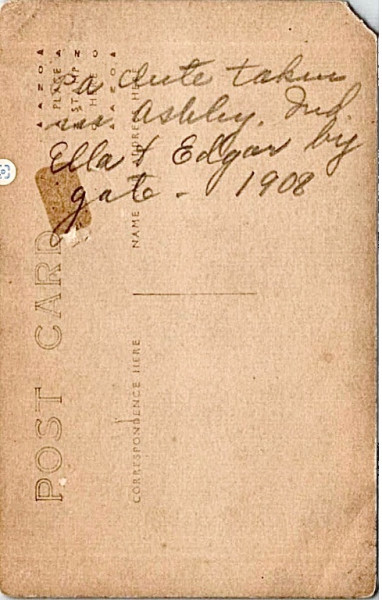 a cute taken
in Ashley, Ind.
Ella & Edgar by
gate - 1908
POST CARD
CORRESPONDENCE HERE
NAME AND ADDRESS HERE
PLACE
STAMP
HERE